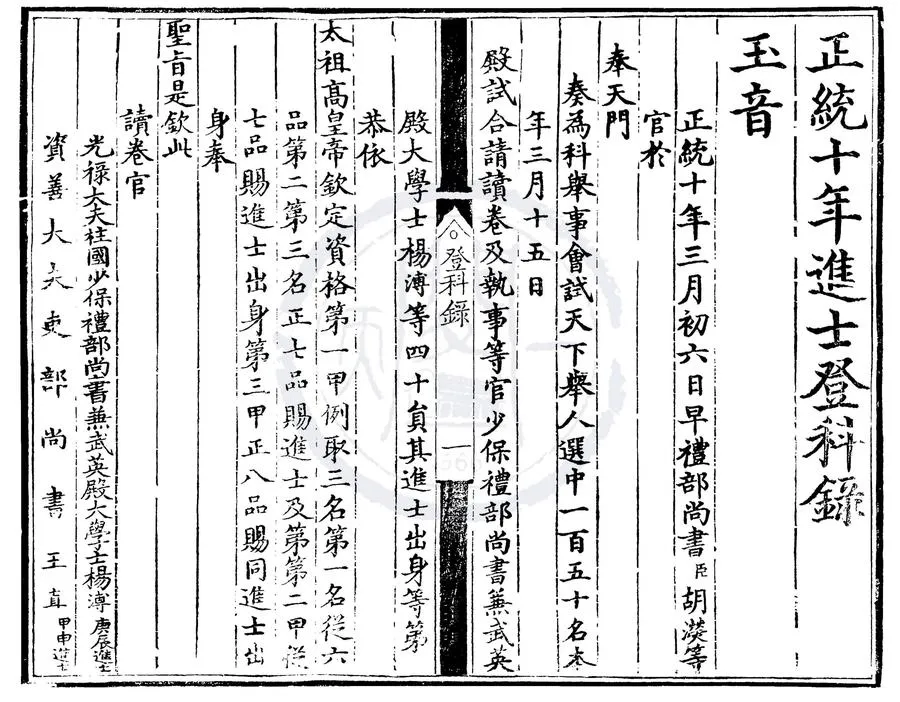 正統十年進士登科錄
玉音
正統十年三月初六日早禮部尚書臣胡濙等
官於
奉天門
奏爲科舉事會試天下舉人選中一百五十名本
年三月十五日
殿試合請讀卷及執事等官少保禮部尚書兼武英
登科錄 一
殿大學士楊溥等四十員其進士出身等第
恭依
太祖高皇帝欽定資格第一甲例取三名第一名從六
品第二第三名正七品賜進士及第第二甲從
七品賜進士出身第三甲正八品賜同進士出
身奉
聖旨是欽此
讀卷官
光祿大夫柱國少保禮部尚書兼武英殿大學士楊溥 庚辰進士
資善大夫吏部尚書王直 甲申進士